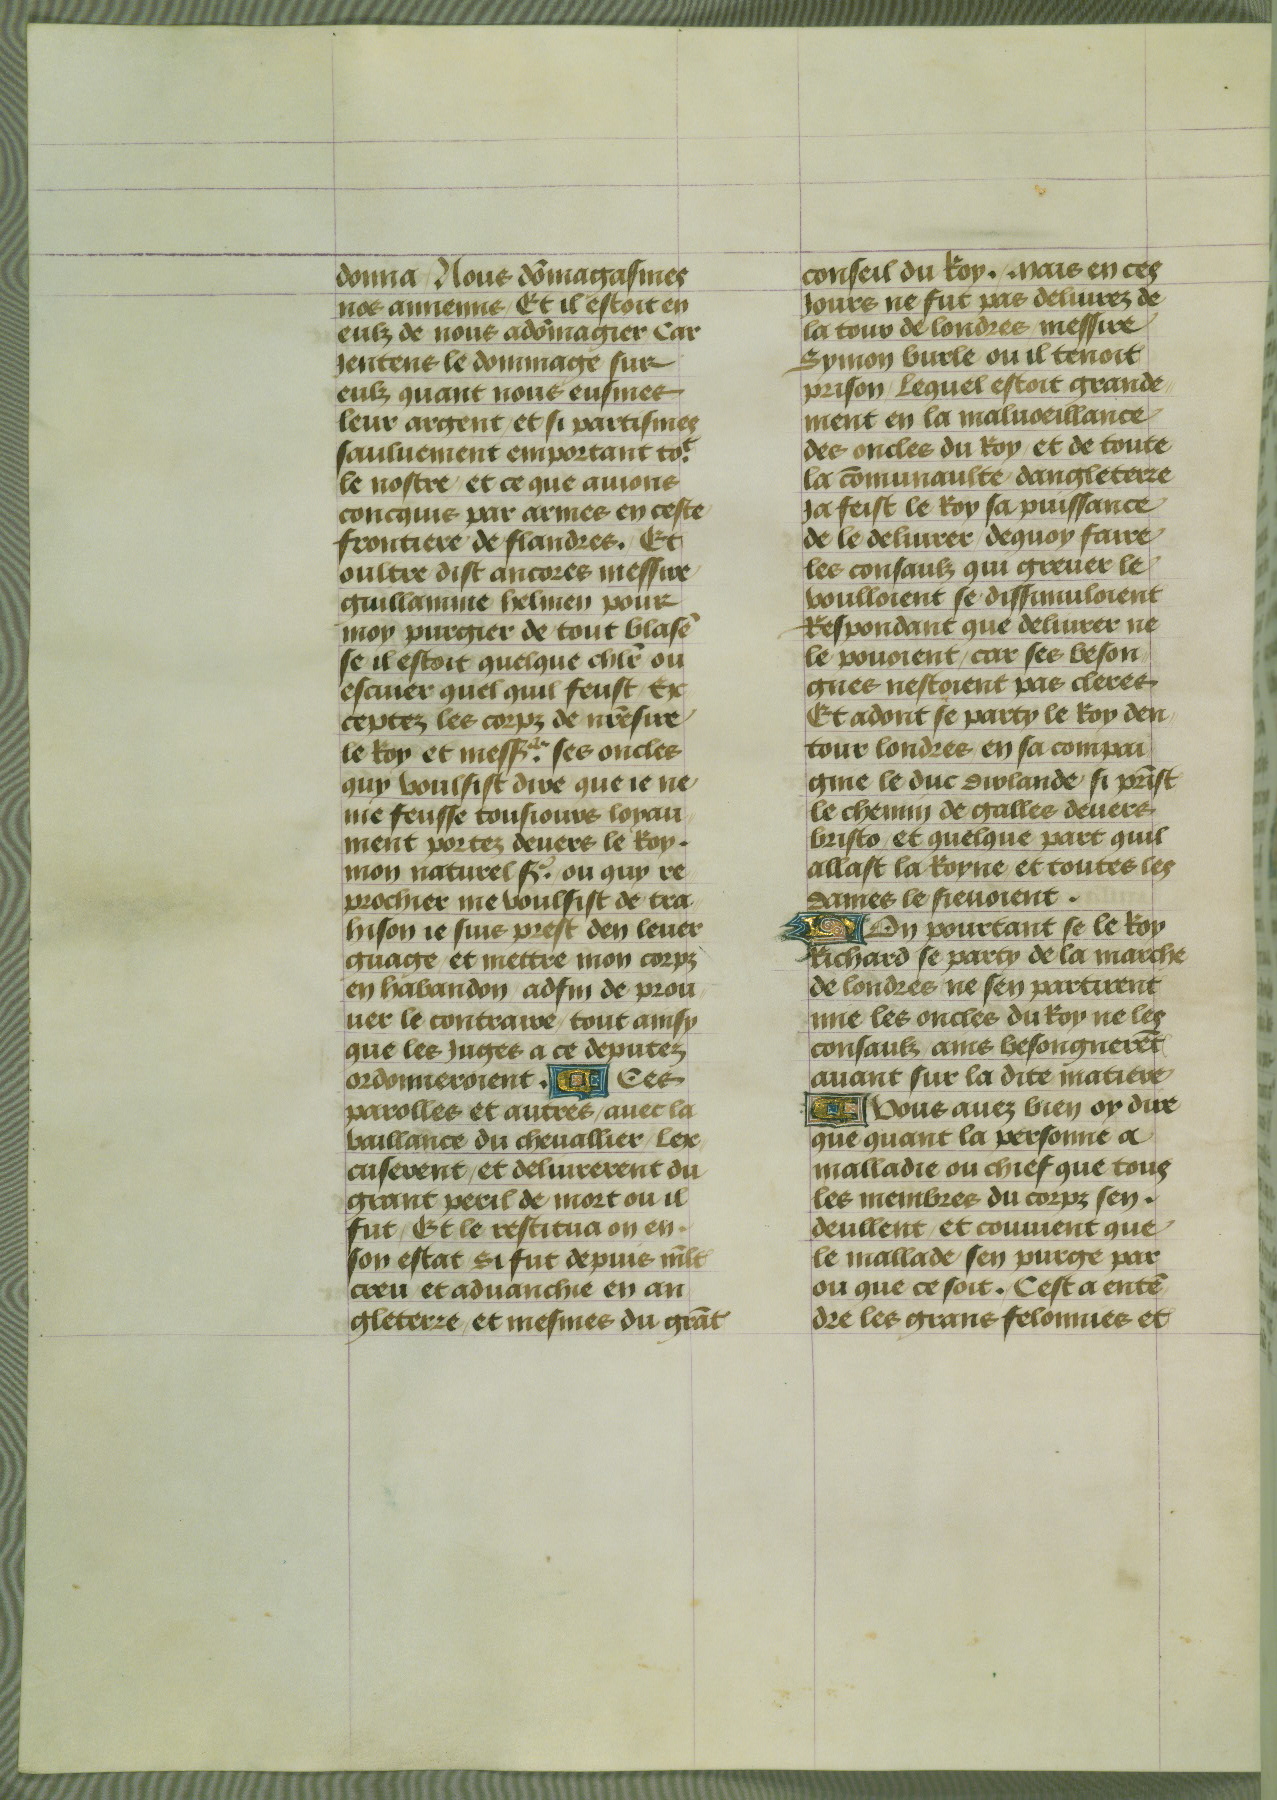 donna / Nous dōmagasmes
nos annemis / Et il estoit en
eulz de nous adōmagier Car
Jentens le dommage sur
eulz quant nous eusmes
leur argent / et si partismes
sauluement emportant tot
le nostre / et ce que auions
concquis par armes en ceste
frontiere de flandres . Et
oultre dist ancores messire
guillamme helmen pour
moy purgier de tout blasē
se il estoit quelque chlr̄ ou
escuier quel quil feust / Ex
ceptez les corpz de nr̄e sire
le Roy et messrs. ses oncles
quy voulsist dire que ie ne
me feusse tousiours loyau
ment portez deuers le Roy .
mon naturel sr. ou quy re
prochier me voulsist de tra
hison ie suis prest den leuer
guage / et mettre mon corpz
en habandon / adfin de prou
uer le contraire / tout ainsy
que les Juges a ce deputez
ordonneroient . Ces
parolles et autres / auec la
vaillance du cheuallier / Lex
cuserent / et deliurerent du
grant peril de mort ou il
fut / Et le restitua on en .
son estat Si fut depuis ml̄t
creu et aduanchie en an
gleterre / et mesmes du grāt
conseil du Roy . . mais en ces
Jours ne fut pas deliurez de
la tour de londres / messire
Symon burle ou il tenoit
prison / Lequel estoit grande
ment en la maluoeillance
des oncles du Roy / et de toute
la cōmunaulte dangleterre
Ja feist le Roy sa puissance
de le deliurer / dequoy faire
les consaulz qui greuer le
voulloient se dissimuloient
Respondant que deliurer ne
le pouoient / car ses beson
gnes nestoient pas cleres
Et adont se party le Roy den
tour londres / en sa compai
gnie le duc dirlande / si prīst
le chemin de galles deuers
bristo / et quelque part quil
allast la Royne / et toutes les
dames le sieuoient .
On pourtant se le Roy
Richard se party de la marche
de londres / ne sen partirent
mie les oncles du Roy ne les
consaulz / ains besongnerēt
auant sur la dite matiere
Vous auez bien oy dire
que quant la personne a
malladie ou chief que tous
les membres du corpz sen .
deullent / et conuient que
le mallade sen purge par
ou que ce soit . Cest a entē
dre les grans felonnies et